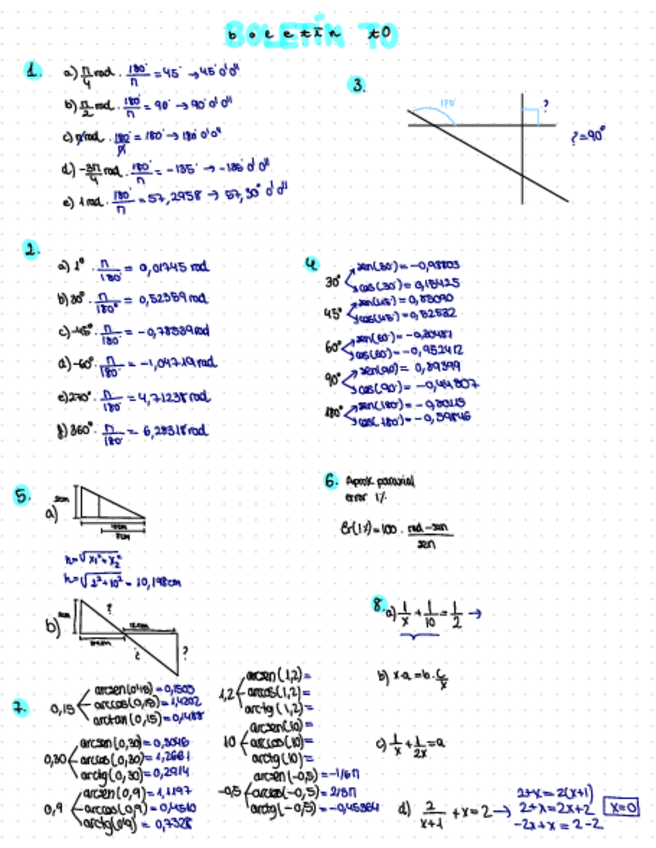 BOLETÍN T0
boletín t0
1.
a) π/4 rad · 180°/π = 45° → 45° 0' 0''
b) π/2 rad · 180°/π = 90° → 90° 0' 0''
c) π rad · 180°/π = 180° → 180° 0' 0''
d) -3π/4 rad · 180°/π = -135° → -135° 0' 0''
e) 1 rad · 180°/π = 57,2958 → 57,30° 0' 0''
3.
150°
?
?=90°
2.
a) 1° · π/180° = 0,01745 rad
b) 30° · π/180° = 0,52359 rad
c) -45° · π/180° = -0,78539 rad
d) -60° · π/180° = -1,04719 rad
e) 270° · π/180° = 4,71238 rad
f) 360° · π/180° = 6,28318 rad
4.
30°
sen(30°) = -0,98803
cos(30°) = 0,15425
45°
sen(45°) = 0,85090
cos(45°) = 0,52532
60°
sen(60°) = -0,30481
cos(60°) = -0,952412
90°
sen(90) = 0,89399
cos(90°) = -0,44807
180°
sen(180°) = -0,80115
cos(180°) = -0,59846
5.
a)
2cm
10cm
h=√x₁²+x₂²
h=√2²+10² = 10,198cm
b)
?
?
?
6. Aprox paraxial
error 1%
Er(1%)=100 · rad-sen/sen
7.
0,15
arcsen(0,15) = 0,1505
arccos(0,15) = 1,4202
arctan(0,15) = 0,1488
0,30
arcsen(0,30) = 0,3046
arccos(0,30) = 1,2661
arctg(0,30) = 0,2914
0,9
arcsen(0,9) = 1,1197
arccos(0,9) = 0,4510
arctg(0,9) = 0,7328
1,2
arcsen(1,2) =
arccos(1,2) =
arctg(1,2) =
10
arcsen(10) =
arccos(10) =
arctg(10) =
-0,5
arcsen(-0,5) = -1/6π
arccos(-0,5) = 2/3π
arctg(-0,5) = -0,46364
8.
a) 1/x + 1/10 = 1/2 →
b) x·a = b · c/x
c) 1/x + 1/2x = a
d) 2/x+1 + x = 2 →
2+x = 2(x+1)
2+x = 2x+2
x=0
-2x+x = 2-2